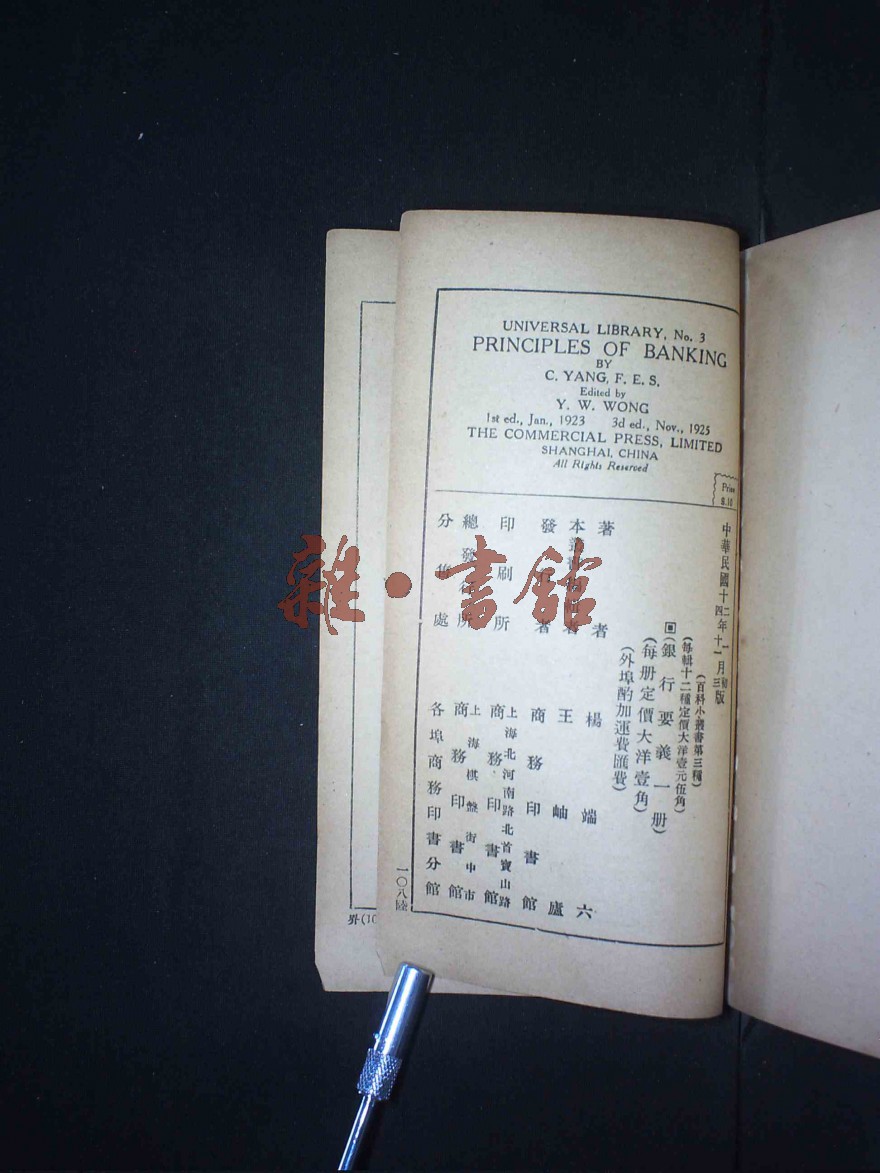 UNIVERSAL LIBRARY, No. 3
PRINCIPLES OF BANKING
BY
C. YANG, F. E. S.
Edited by
Y. W. WONG
1st ed., Jan., 1923 3d ed., Nov., 1925
THE COMMERCIAL PRESS, LIMITED
SHANGHAI, CHINA
All Rights Reserved
Price
$.10
中華民國十二年一月初版
中華民國十四年十一月三版
(百科小叢書第三種)
(每輯十二種定價大洋壹元伍角)
(銀行要義一册)
(每册定價大洋壹角)
(外埠酌加運費匯費)
著者 楊端六
本叢書 者 王岫廬
發 者 商務印書館
印刷所 上海北河南路北首寶山路 商務印書館
總發行所 上海棋盤街中市 商務印書館
分 處 各埠商務印書分館
一〇八陸
雜·書館